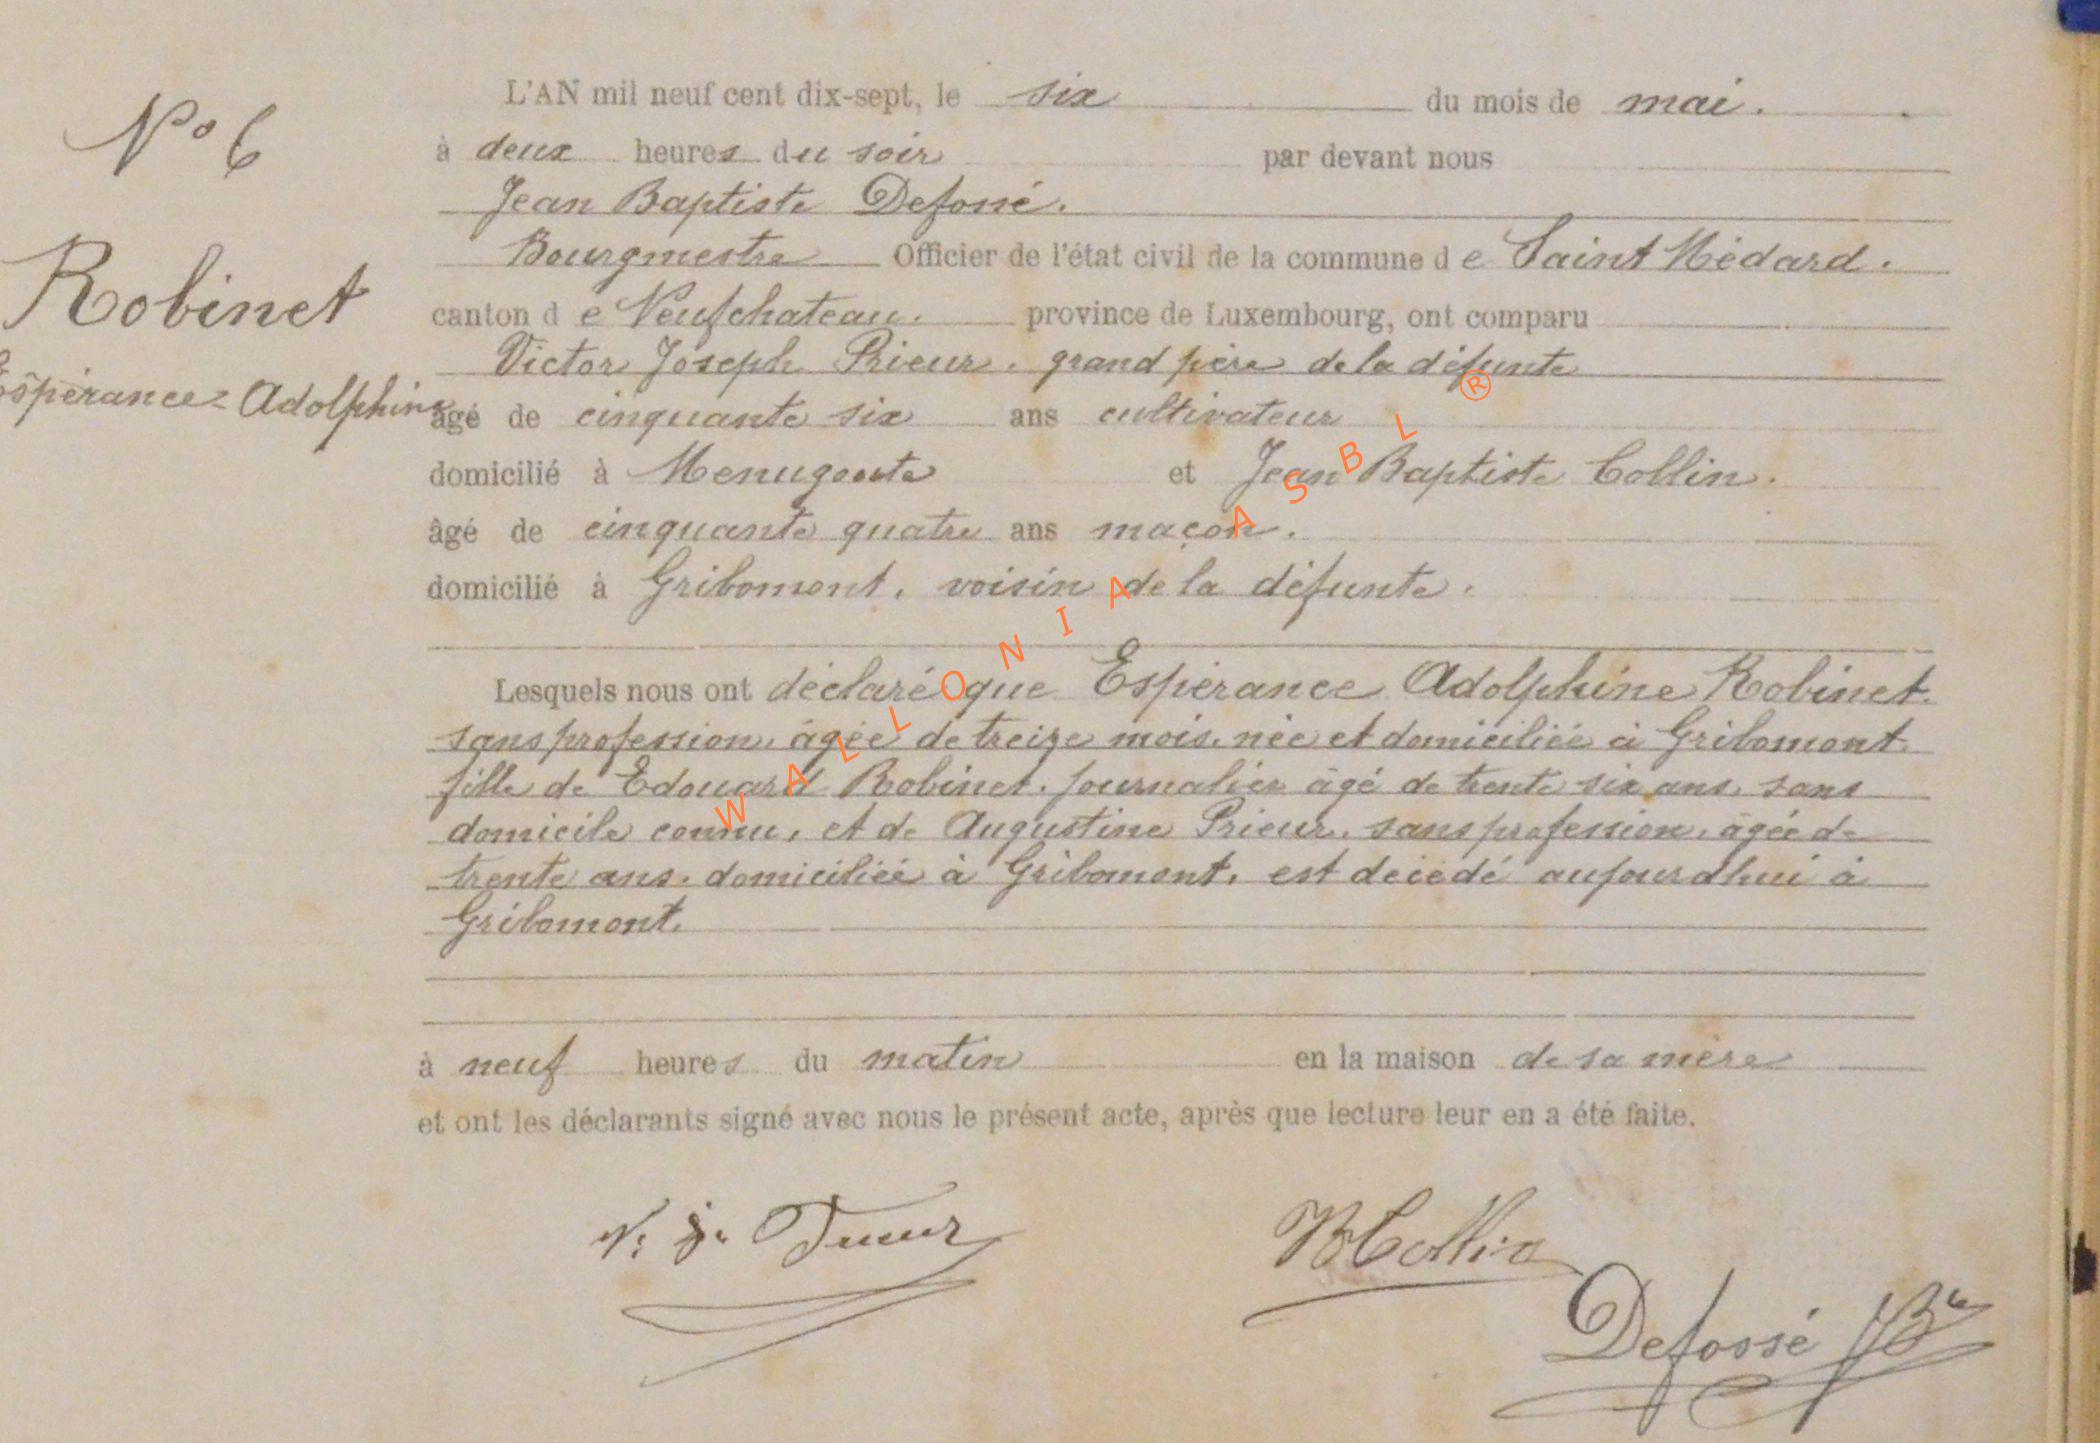 N° 6
Robinet
Espérance-Adolphine
L'AN mil neuf cent dix-sept, le six du mois de mai.
à deux heures du soir par devant nous
Jean Baptiste Defossé.
Bourgmestre Officier de l'état civil de la commune de Saint Médard.
canton de Neufchateau. province de Luxembourg, ont comparu
Victor Joseph Prieur. grand père de la défunte
âgé de cinquante six ans cultivateur
domicilié à Menugoutte et Jean Baptiste Collin.
âgé de cinquante quatre ans maçon.
domicilié à Gribomont, voisin de la défunte.
Lesquels nous ont déclaré que Espérance Adolphine Robinet.
sans profession, âgée de treize mois, née et domiciliée à Gribomont.
fille de Edouard Robinet. journalier âgé de trente six ans, sans
domicile connu, et de Augustine Prieur, sans profession, âgée de
trente ans. domiciliée à Gribomont, est décédé aujourdhui à
Gribomont.
à neuf heures du matin en la maison de sa mère
et ont les déclarants signé avec nous le présent acte, après que lecture leur en a été faite.
V. J. Prieur
JBCollin
Defossé JBte
WALLONIA ASBL ®